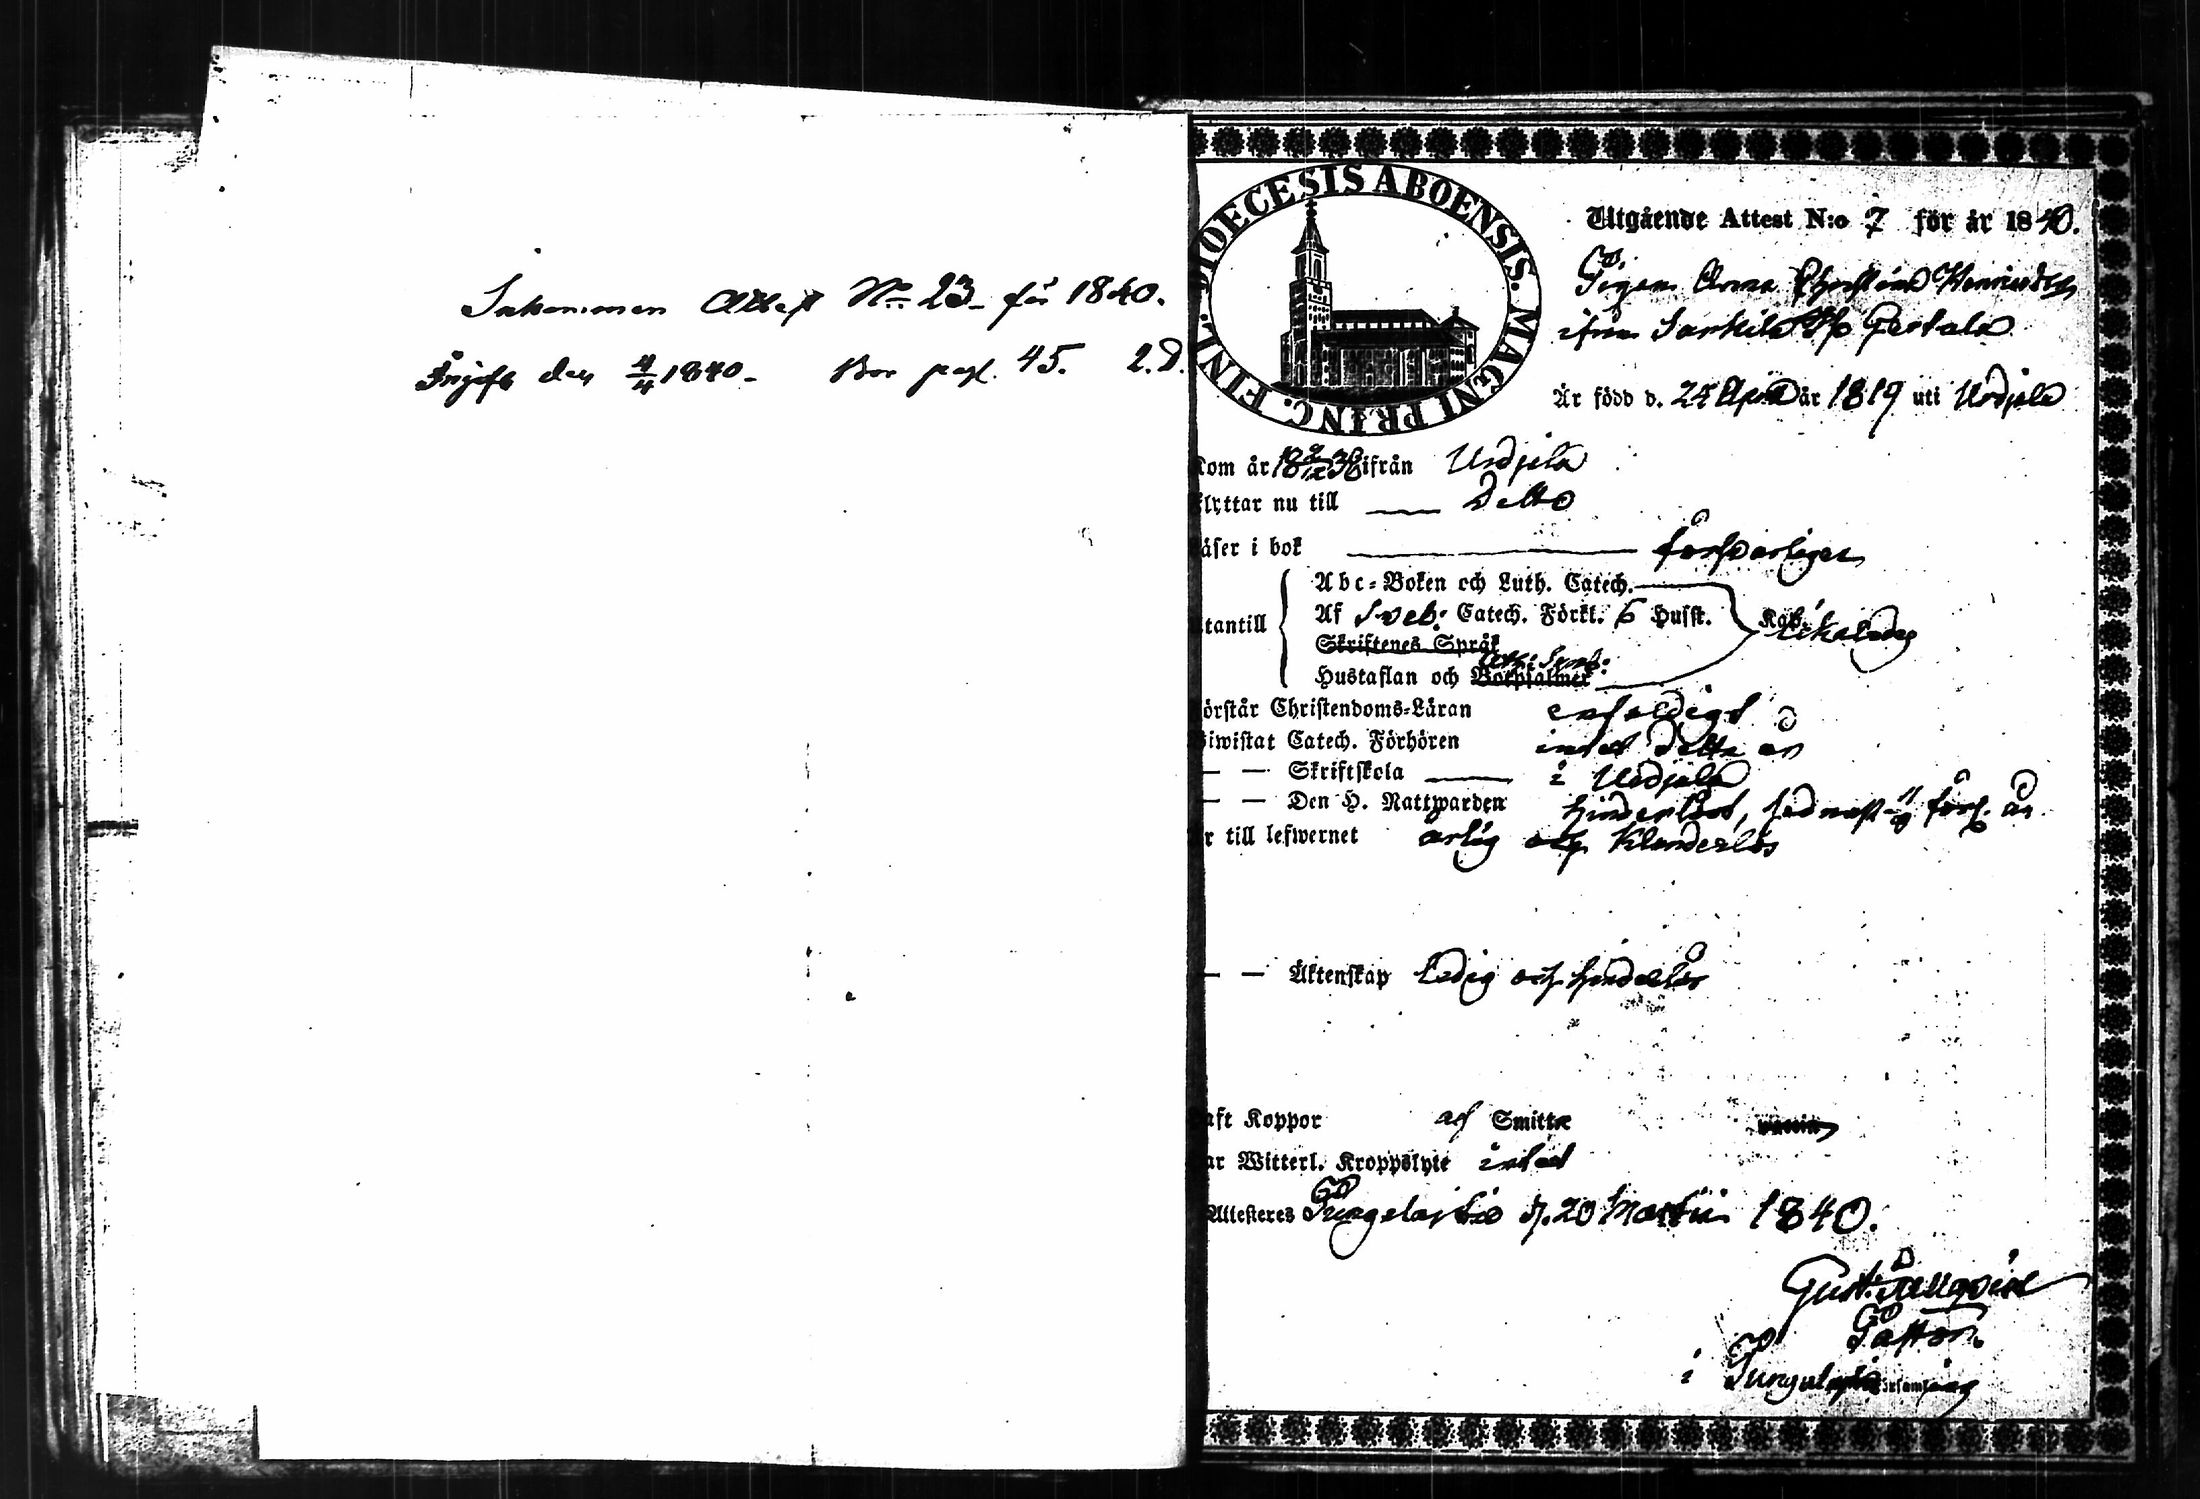 Inkommen Attest No 23 för 1840.
Ingift den 4/4 1840. Bor pag. 45. 2.D.
DIOECESIS ABOENSIS. MAGNI PRINC. FINL.
Utgående Attest N:o 7 för år 1840.
Pigan Anna Christina Henricsdr
ifrån Sarkila
Är född d. 24 April år 1819 uti Urdjala
Kom år 18 38 ifrån Urdjala
flyttar nu till Ditto
Läser i bok försvarligen
Utantill
Abc-Boken och Luth. Catech.
Af Sveb. Catech. Förkl. 6 Husst. Kap.
Skriftenes Språk
Ath: Symb:
Hustaflan och Botpsalmer
Förstår Christendoms-Läran enfaldigt
Biwistat Catech. Förhören intet detta år
— — Skriftskola i Urdjala
— — Den H. Nattwarden hinderlöst, sednast förl. år
Är till lefwernet ärlig och klanderlös
— — Äktenskap Ledig och hinderlös
Haft Koppor af Smitta
Har Witterl. Kroppslyte intet
Attesteres Pungelaitio d. 20 Martii 1840.
Gust.
Pastor.
i Pungalaitio församling